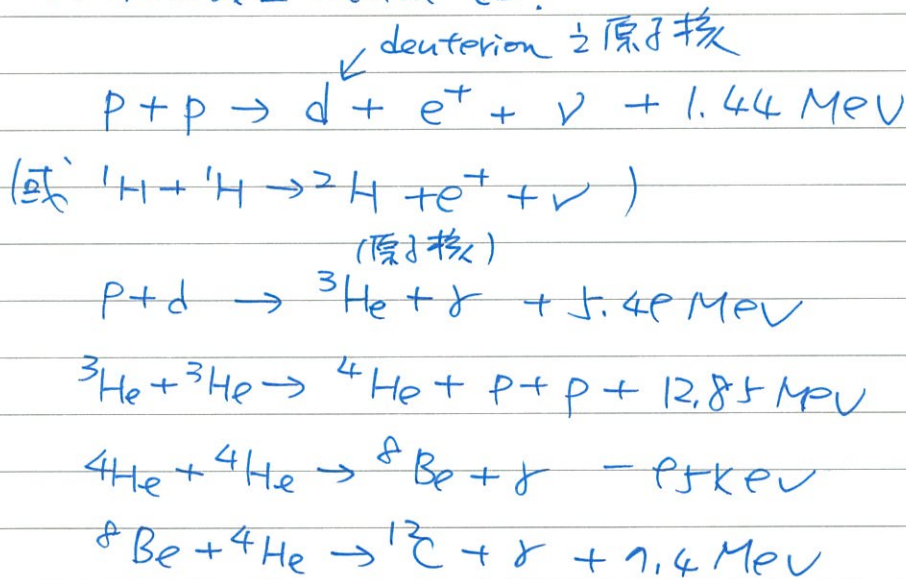 deuterion 之原子核
p + p → d + e⁺ + ν + 1.44 MeV
(或 ¹H + ¹H → ²H + e⁺ + ν )
(原子核)
p + d → ³He + γ + 5.49 MeV
³He + ³He → ⁴He + p + p + 12.85 MeV
⁴He + ⁴He → ⁸Be + γ - 95 keV
⁸Be + ⁴He → ¹²C + γ + 7.4 MeV